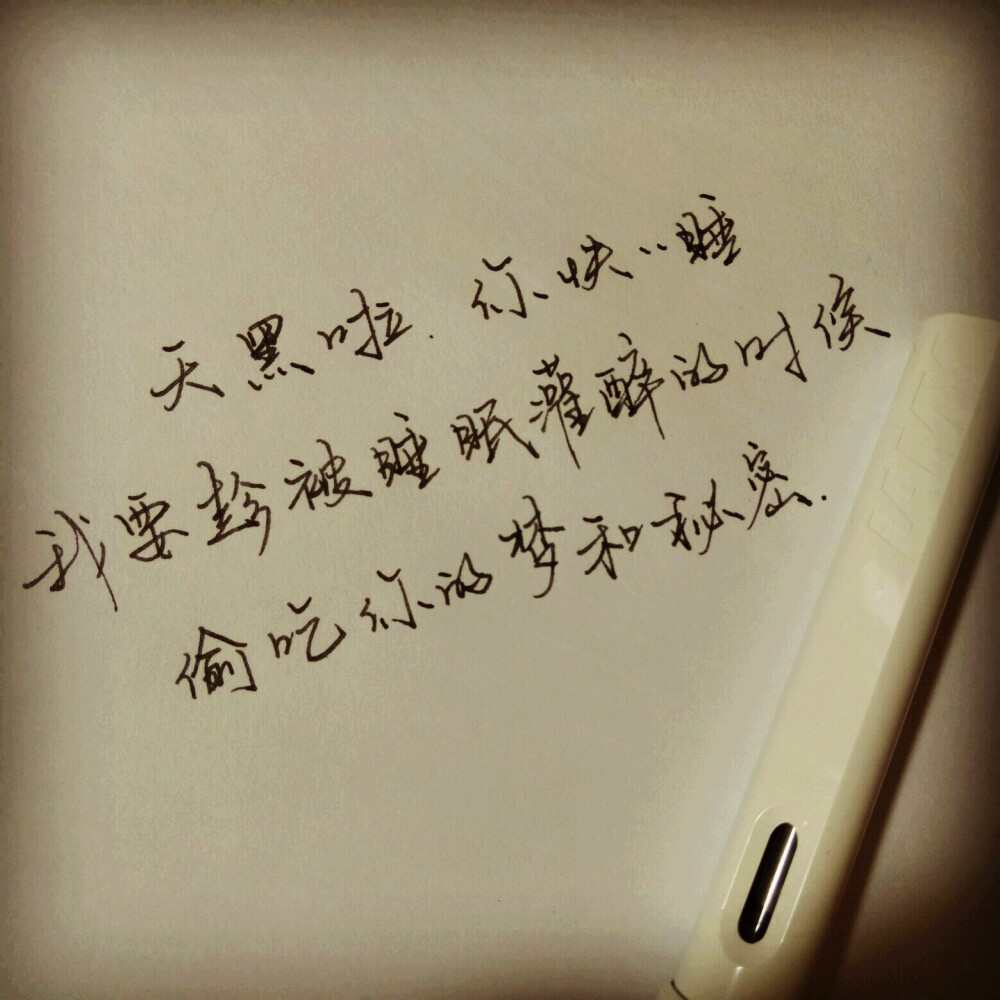 天黑啦.你快快睡
我要趁被睡眠灌醉的时候
偷吃你的梦和秘密.
LAMY